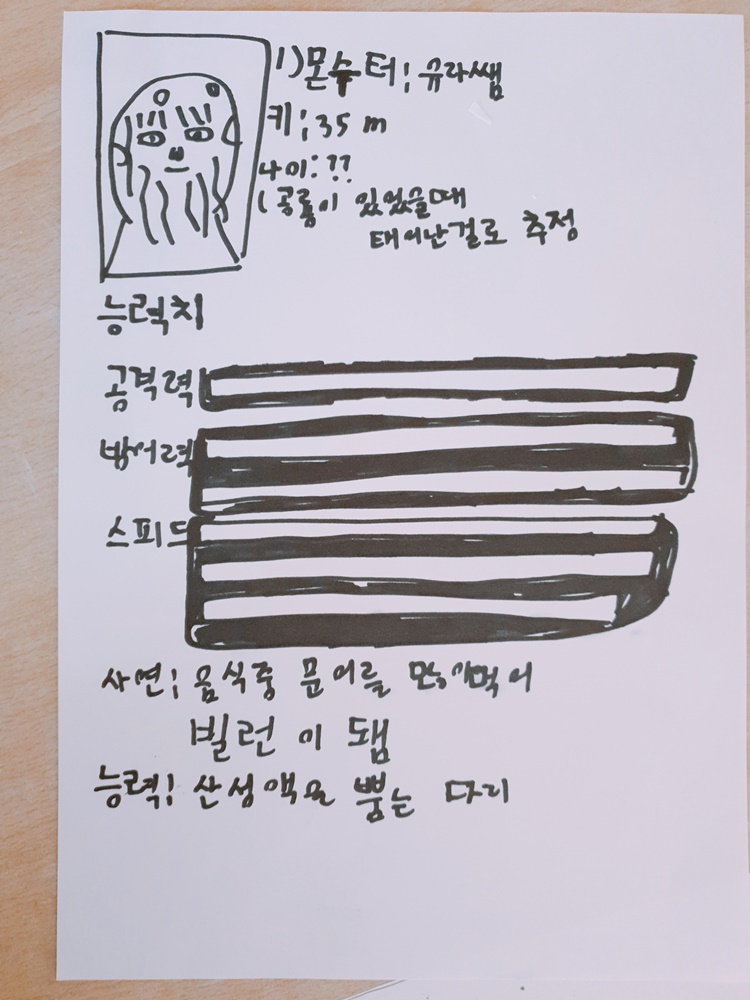 1) 몬슈터; 유라쌤
키; 35 m
나이: ??
(공룡이 있었을때
태어난걸로 추정
능력치
공격력
방어력
스피드
사연; 음식중 문어를 많이먹어
빌런이 됌
능력; 산성액을 뿜는 다리